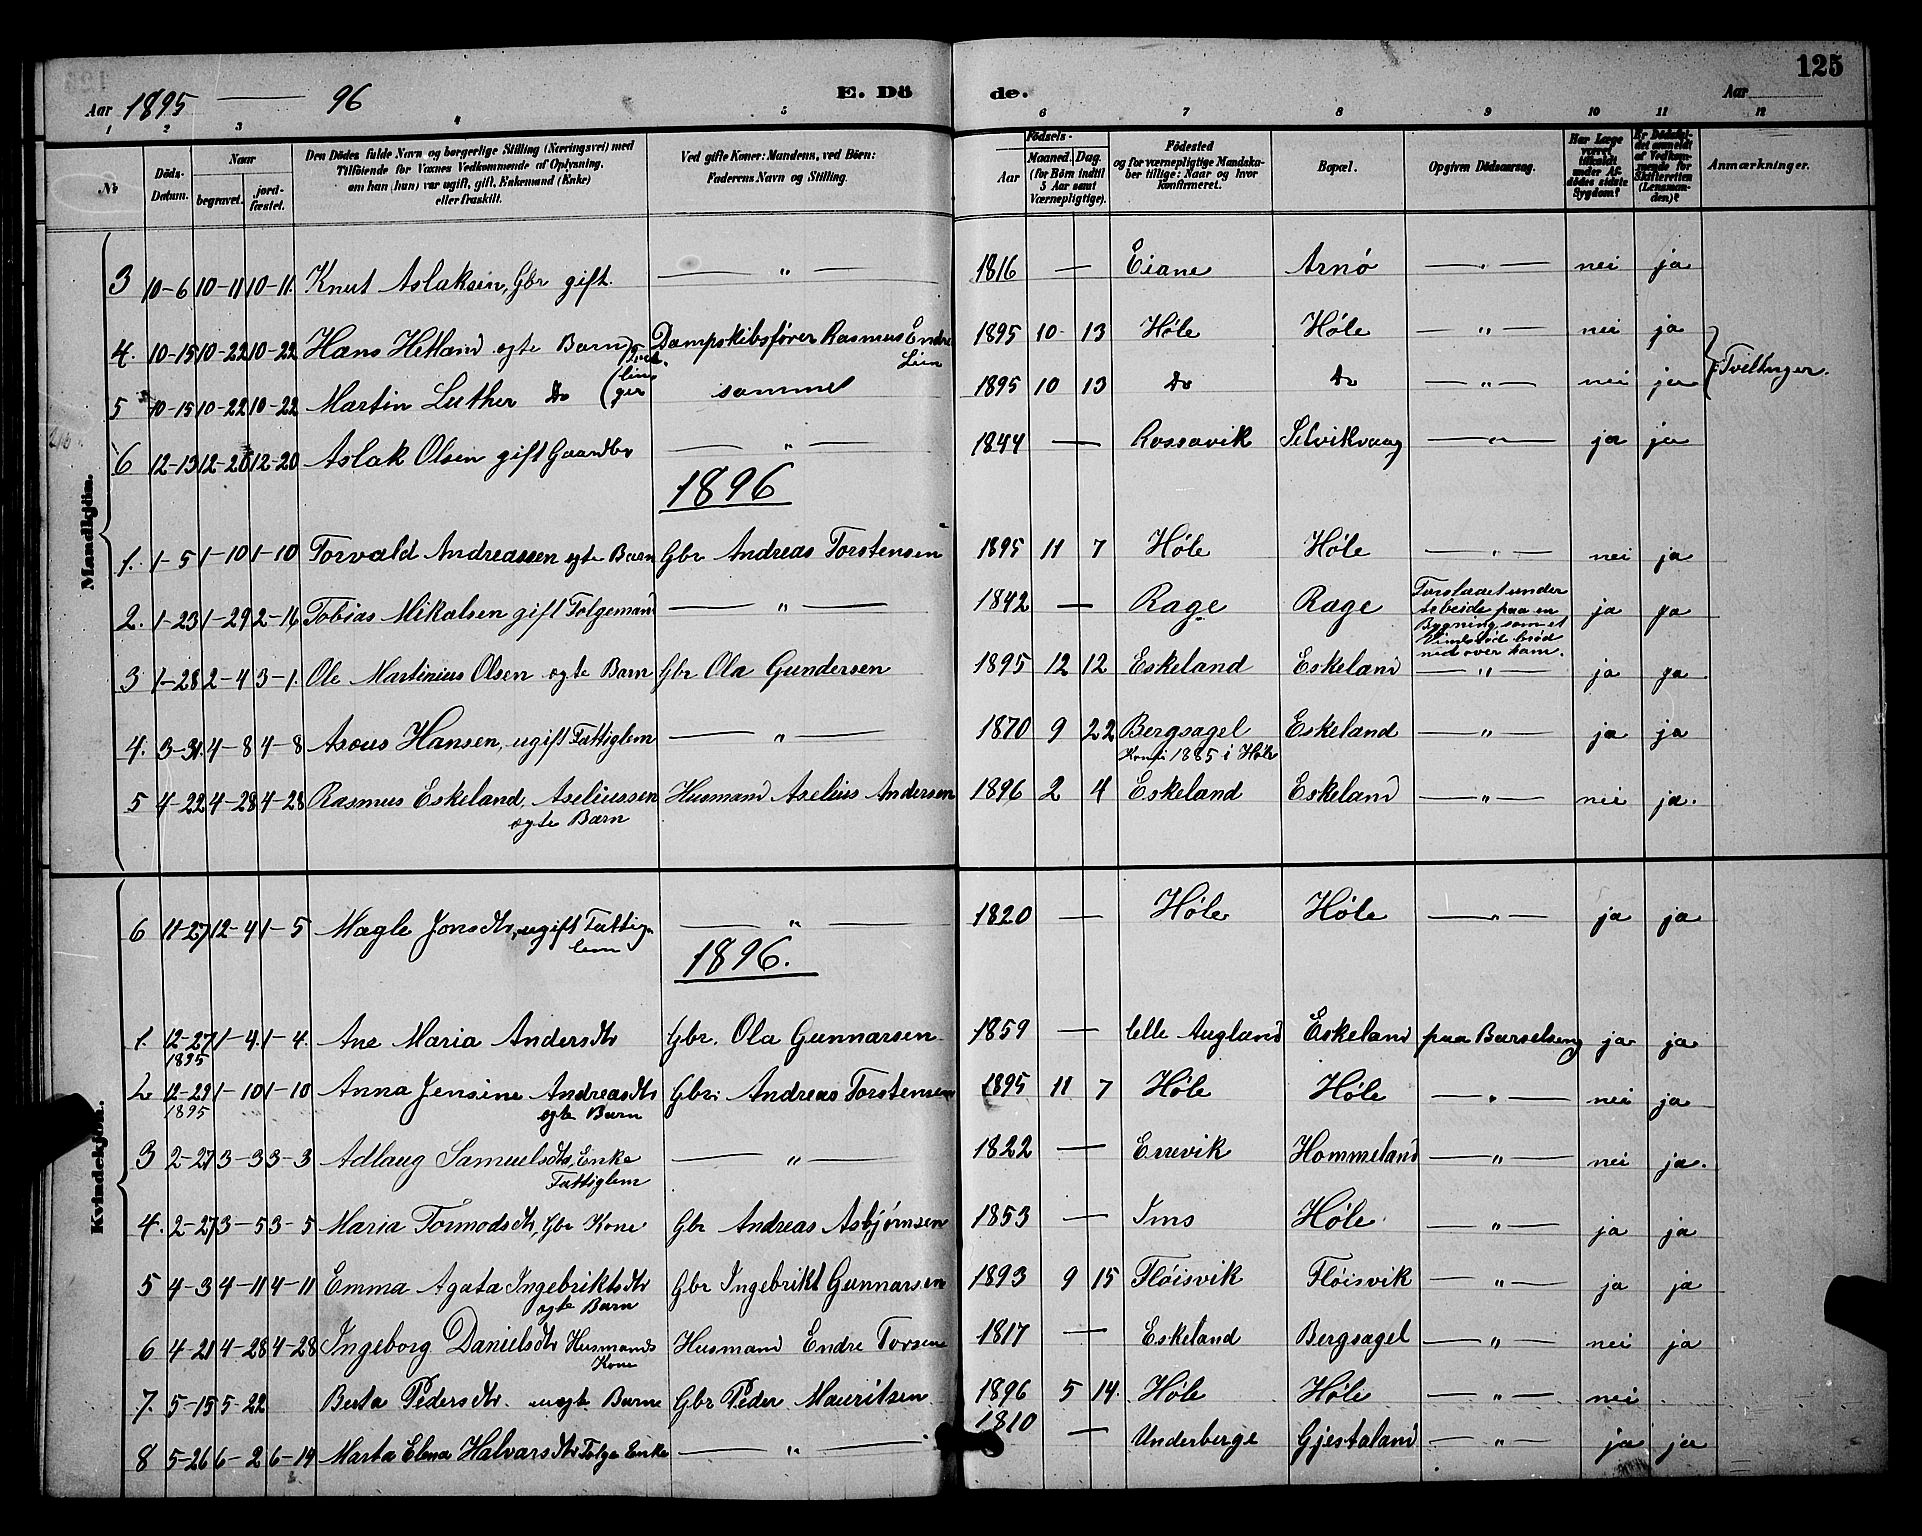 125
Aar 1895 — 96 E. Dö de. Aar
1 2 3 4 5 6 7 8 9 10 11 12
Nr.
Döds-Datum.
Naar
begravet.
jord-fæstet.
Den Dödes fulde Navn og borgerlige Stilling (Næringsvei) med
Tilföiende for Voxnes Vedkommende af Oplysning,
om han (hun) var ugift, gift, Enkemand (Enke)
eller fraskilt.
Ved gifte Koner: Mandens, ved Börn:
Faderens Navn og Stilling.
Födsels-
Aar
Maaned. Dag.
(for Börn indtil
5 Aar samt
Værnepligtige).
Födested
og for værnepligtige Mandska-
ber tillige: Naar og hvor
konfirmeret.
Bopæl.
Opgiven Dödsaarsag.
Har Læge
været
tilkaldt
under Af-
dödes sidste
Sygdom?
Er Dödsfal-
det anmeldt
af Vedkom-
mende for
Skifteretten
(Lensman-
den)?
Anmærkninger.
Mandkjön.
3 10-6 10-11 10-11 Knut Aslaksen, Gbr gift. — " — 1816 — Eiane Arnø — " — nei ja
4. 10-15 10-22 10-22 Hans Hetland ægte Barn Dampskibsfører Rasmus Endre 1895 10 13 Høle Høle — " — nei ja
Lien
5 10-15 10-22 10-22 Martin Luther Do sammel 1895 10 13 Do Do — " — nei ja Tvillinger.
6 12-13 12-20 12-20 Aslak Olsen gift Gaardbr — " — 1844 — Rossavik Selvikvaag — " — ja ja
1896
1. 1-5 1-10 1-10 Torvald Andreassen ægte Barn Gbr Andreas Torstensen 1895 11 7 Høle Høle — " — nei ja
2. 1-23 1-29 2-16 Tobias Mikalsen gift Folgemand — " — 1842 — Rage Rage Forslaaet under
Arbeide paa en
Bygning, som et
Vindstød brød
ned over ham. ja ja
3 1-28 2-4 3-1. Ole Martinius Olsen ægte Barn Gbr Ola Gundersen 1895 12 12 Eskeland Eskeland — " — ja ja
4. 3-31. 4-8 4-8 Asous Hansen, ugift Fattiglem — " — 1870 9 22 Bergsagel Eskeland — " — ja ja
Konf. 1885 i Høle
5 4-22 4-28 4-28 Rasmus Eskeland Aseliussen Husmand Aselius Andersen 1896 2 4 Eskeland Eskeland — " — nei ja.
ægte Barn
Kvindekjön.
6 11-27 12-4 1-5 Magle Jonsdtr, ugift Fattig- — " — 1820 — Høle Høle — " — ja ja
lem
1896.
1. 12-27 1-4 1-4. Ane Maria Andersdtr Gbr. Ola Gunnarsen 1859 — Lille Augland Eskeland paa Barselseng ja ja
1895
2 12-29 1-10 1-10 Anna Jensine Andreasdtr Gbr. Andreas Torstensen 1895 11 7 Høle Høle — " — nei ja
1895 ægte Barn
3 2-27 3-3 3-3 Adlaug Samuelsdtr, Enke — " — 1822 — Errevik Hommeland — " — nei ja.
Fattiglem
4. 2-27 3-5 3-5 Maria Tormodsdtr, Gbr Kone Gbr Andreas Asbjørnsen 1853 — Ims Høle — " — ja ja
5 4-3 4-11 4-11 Emma Agata Ingebriktsdtr Gbr Ingebrikt Gunnarsen 1893 9 15 Fløisvik Fløisvik — " — ja ja
ægte Barn
6 4-21 4-28 4-28 Ingeborg Danielsdtr Husmands Husmand Endre Torsen 1817 — Eskeland Bergsagel — " — nei ja
Kone
7. 5-15 5-22 Berta Pedersdtr. uægte Barn Gbr Peder Mauritsen 1896 5 14. Høle Høle — " — nei
8 5-26 6-2 6-14 Marta Elena Halvarsdtr Folge Enke — " — 1810 — Underberge Gjestaland — " — ja ja